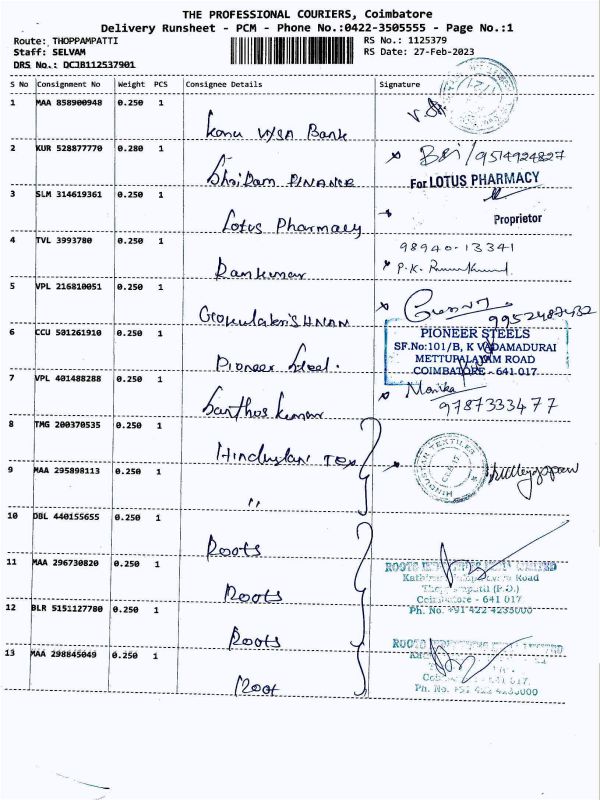 THE PROFESSIONAL COURIERS, Coimbatore
Delivery Runsheet - PCM - Phone No.:0422-3505555 - Page No.:1
Route: THOPPAMPATTI RS No.: 1125379
Staff: SELVAM RS Date: 27-Feb-2023
DRS No.: DCJB112537901
S No Consignment No Weight PCS Consignee Details Signature
1 MAA 858900948 0.250 1
Bank
2 KUR 528877770 0.280 1 9514924827
Shri Ram FINANCE For LOTUS PHARMACY
3 SLM 314619361 0.250 1
Lotus Pharmacy Proprietor
4 TVL 3993780 0.250 1 98940-13341
Ramkumar P.K.
5 VPL 216810051 0.250 1
Gokulakrishnan 9952487432
6 CCU 501261910 0.250 1 PIONEER STEELS
SF.No:101/B, K VADAMADURAI
METTUPALAYAM ROAD
Pioneer Steel. COIMBATORE - 641 017
7 VPL 401488288 0.250 1 Monika
Santhos kumar 9787333477
8 TMG 200370535 0.250 1
Hindustan Tex HINDUSTAN TEXTILES
9 MAA 295898113 0.250 1
"
10 DBL 440155655 0.250 1
Roots
11 MAA 296730820 0.250 1 ROOTS LIMITED
Road
Thoppampatti (P.O.)
Roots Coimbatore - 641 017
12 BLR 5151127780 0.250 1 Ph. No. +91 422 4235000
Roots
13 MAA 298845049 0.250 1 ROOTS LIMITED
Root Ph. No. +91 422 4235000